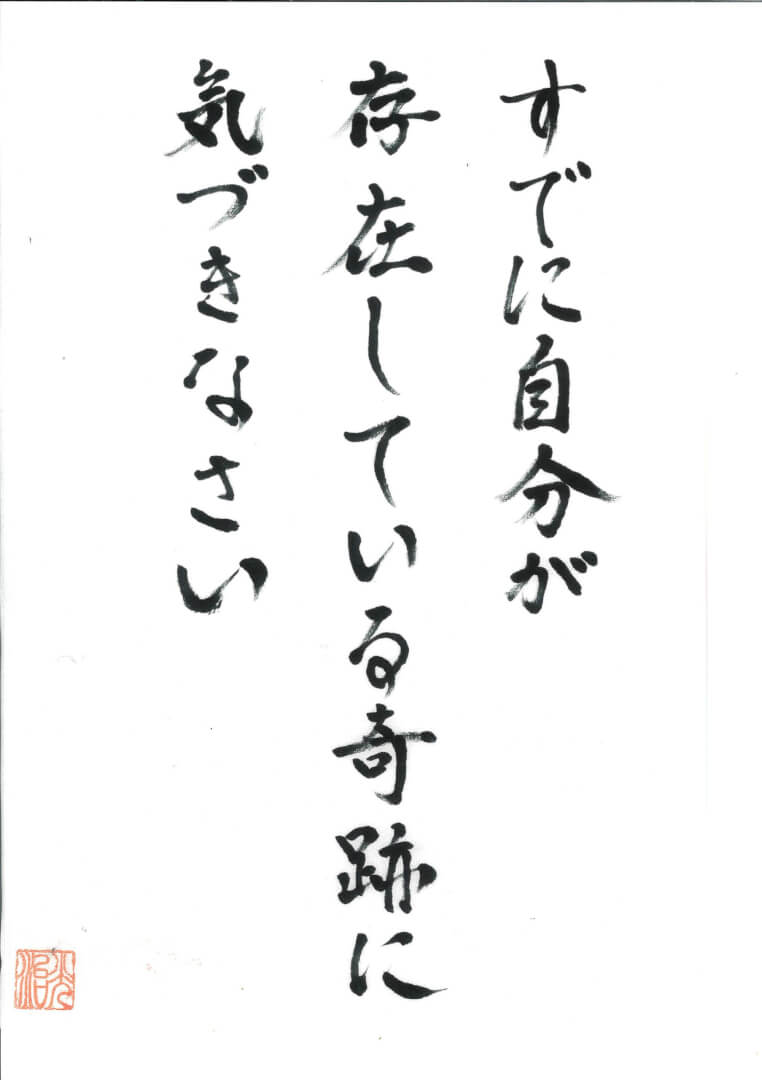 すでに自分が
存在している奇跡に
気づきなさい